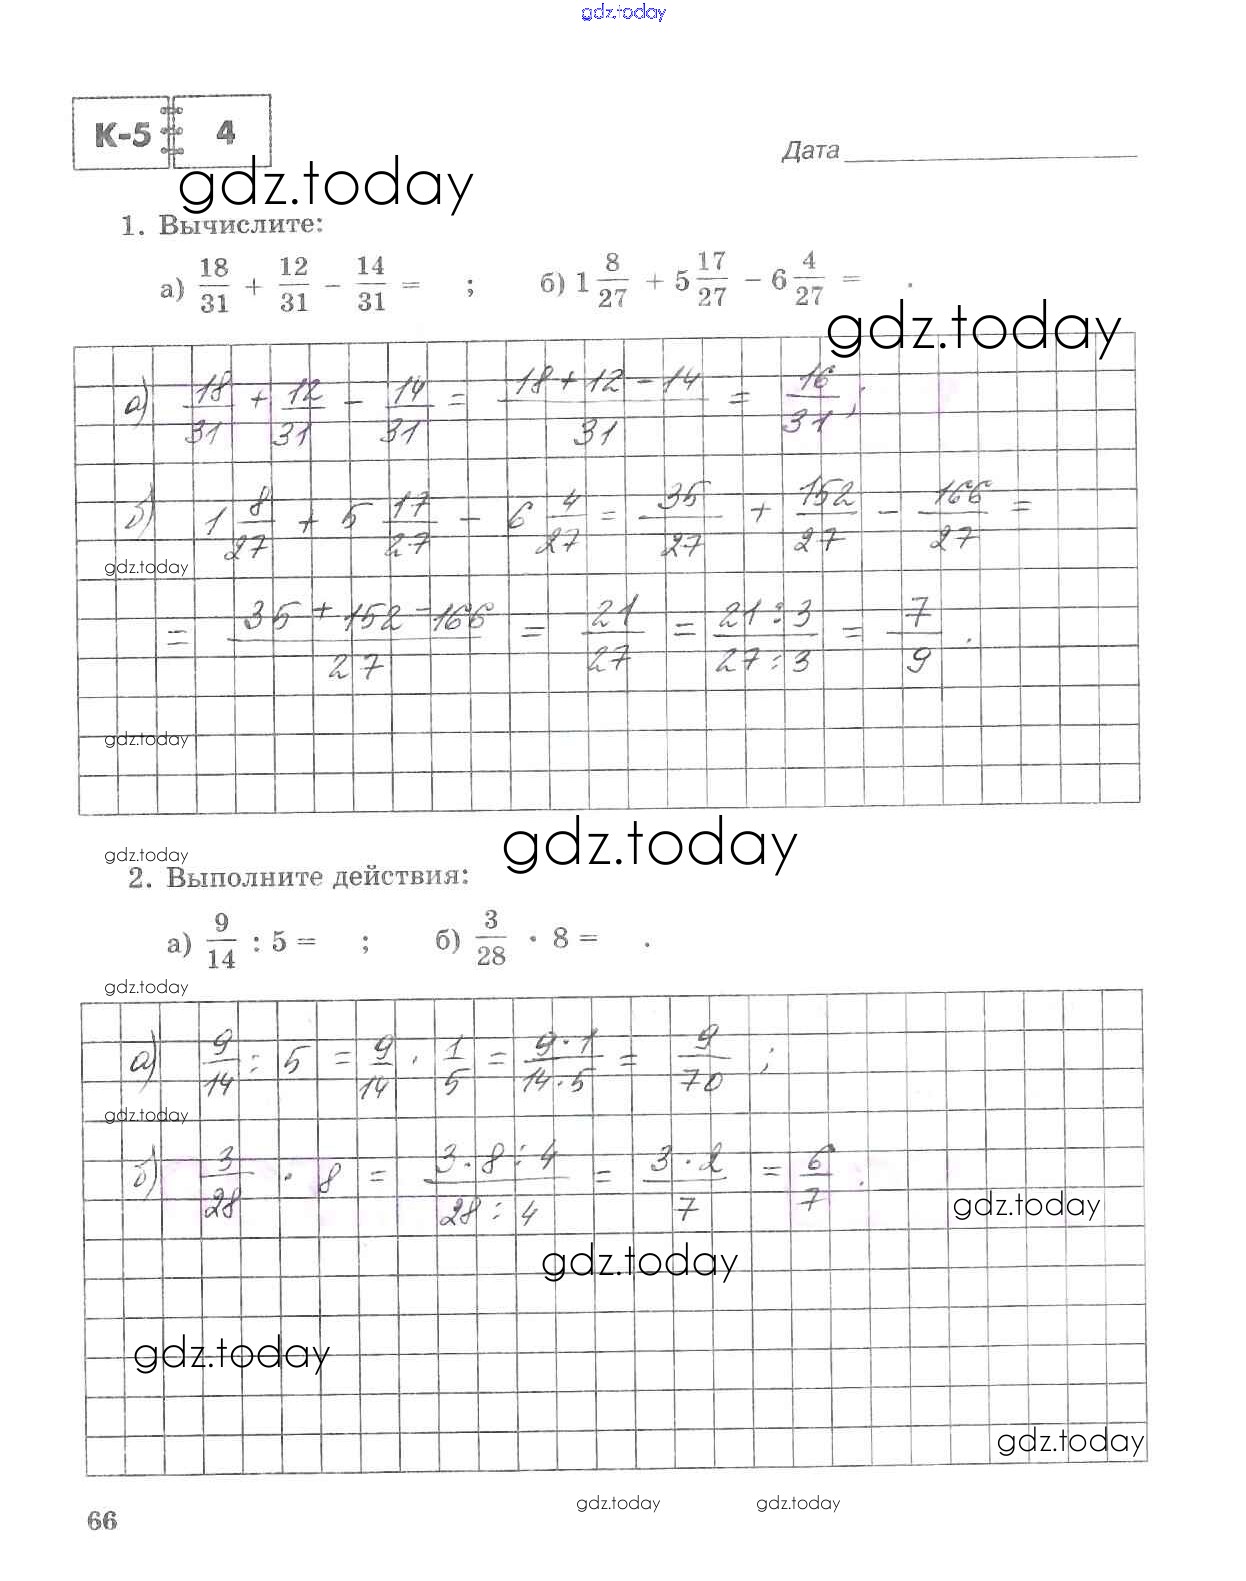 gdz.today
К-5 4
Дата
gdz.today
1. Вычислите:
а) 18/31 + 12/31 − 14/31 = ; б) 1 8/27 + 5 17/27 − 6 4/27 = .
gdz.today
а) 18/31 + 12/31 − 14/31 = (18 + 12 − 14)/31 = 16/31 ;
б) 1 8/27 + 5 17/27 − 6 4/27 = 35/27 + 152/27 − 166/27 =
gdz.today
= (35 + 152 − 166)/27 = 21/27 = (21 : 3)/(27 : 3) = 7/9 .
gdz.today
gdz.today
gdz.today
2. Выполните действия:
а) 9/14 : 5 = ; б) 3/28 · 8 = .
gdz.today
а) 9/14 : 5 = 9/14 · 1/5 = (9 · 1)/(14 · 5) = 9/70 ;
gdz.today
б) 3/28 · 8 = (3 · 8 : 4)/(28 : 4) = (3 · 2)/7 = 6/7 .
gdz.today
gdz.today
gdz.today
gdz.today
gdz.today gdz.today
66